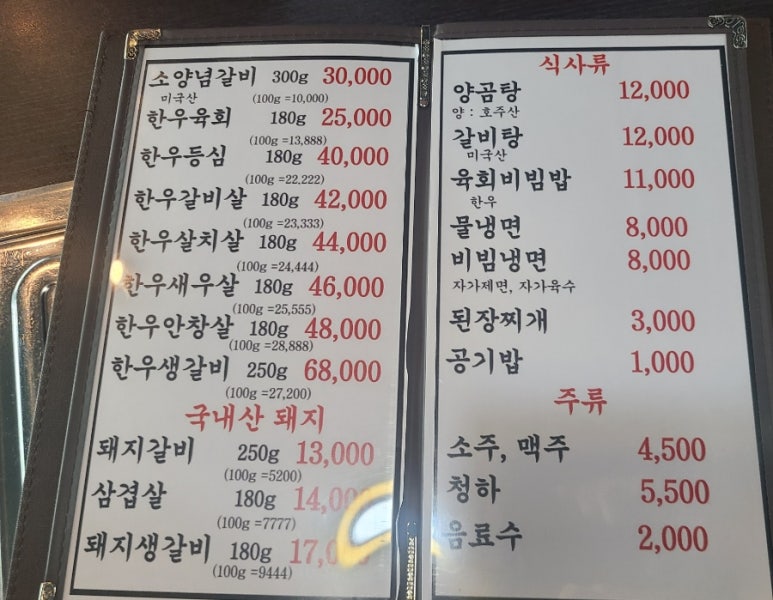 소양념갈비 300g 30,000
미국산 (100g =10,000)
한우육회 180g 25,000
(100g =13,888)
한우등심 180g 40,000
(100g =22,222)
한우갈비살 180g 42,000
(100g =23,333)
한우살치살 180g 44,000
(100g =24,444)
한우새우살 180g 46,000
(100g =25,555)
한우안창살 180g 48,000
(100g =28,888)
한우생갈비 250g 68,000
(100g =27,200)
국내산 돼지
돼지갈비 250g 13,000
(100g =5200)
삼겹살 180g 14,0
(100g =7777)
돼지생갈비 180g 17,
(100g =9444)
식사류
양곰탕 12,000
양 : 호주산
갈비탕 12,000
미국산
육회비빔밥 11,000
한우
물냉면 8,000
비빔냉면 8,000
자가제면, 자가육수
된장찌개 3,000
공기밥 1,000
주류
소주, 맥주 4,500
청하 5,500
음료수 2,000